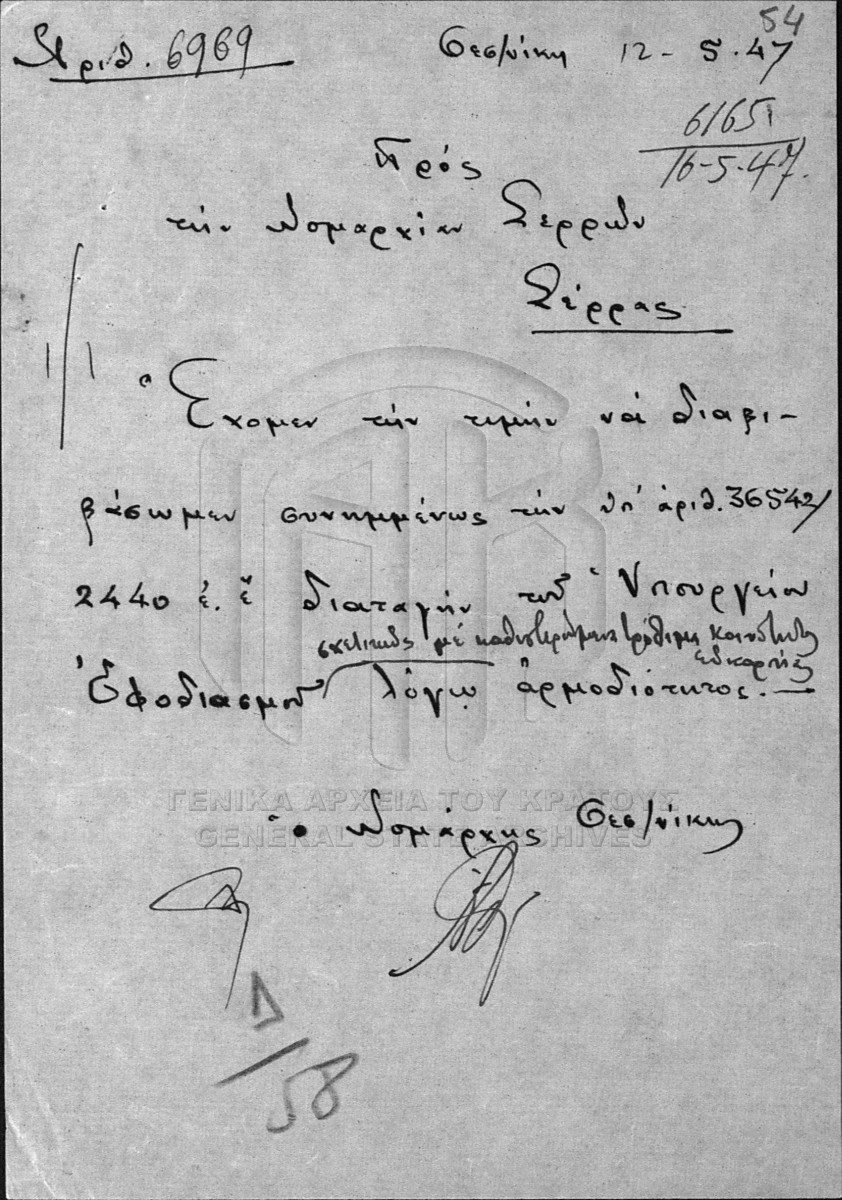 54
Ἀριθ. 6969
Θεσ/νίκη 12-5-47
6165
16-5-47.
Πρός
τήν Νομαρχίαν Σερρῶν
Σέρρας
Ἔχομεν τήν τιμήν νά διαβι-
βάσωμεν συνημμένως τήν ὑπ' ἀριθ. 36542/
2440 ἐ. ἔ διαταγήν τοῦ Ὑπουργείου
σχετικῶς μέ καθυστερούμενα τρόφιμα Κοινότητος
Εὐκαρπίας
Ἐφοδιασμοῦ λόγῳ ἁρμοδιότητος.—
ΓΕΝΙΚΑ ΑΡΧΕΙΑ ΤΟΥ ΚΡΑΤΟΥΣ
GENERAL STATE ARCHIVES
ὁ Νομάρχης Θεσ/νίκης
Δ/58